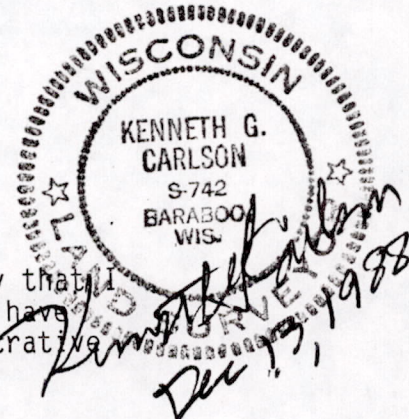 WISCONSIN
KENNETH G.
CARLSON
S-742
BARABOO
WIS.
LAND SURVEYOR
y that I
have
trative
Kenneth G Carlson
Dec 13, 1988